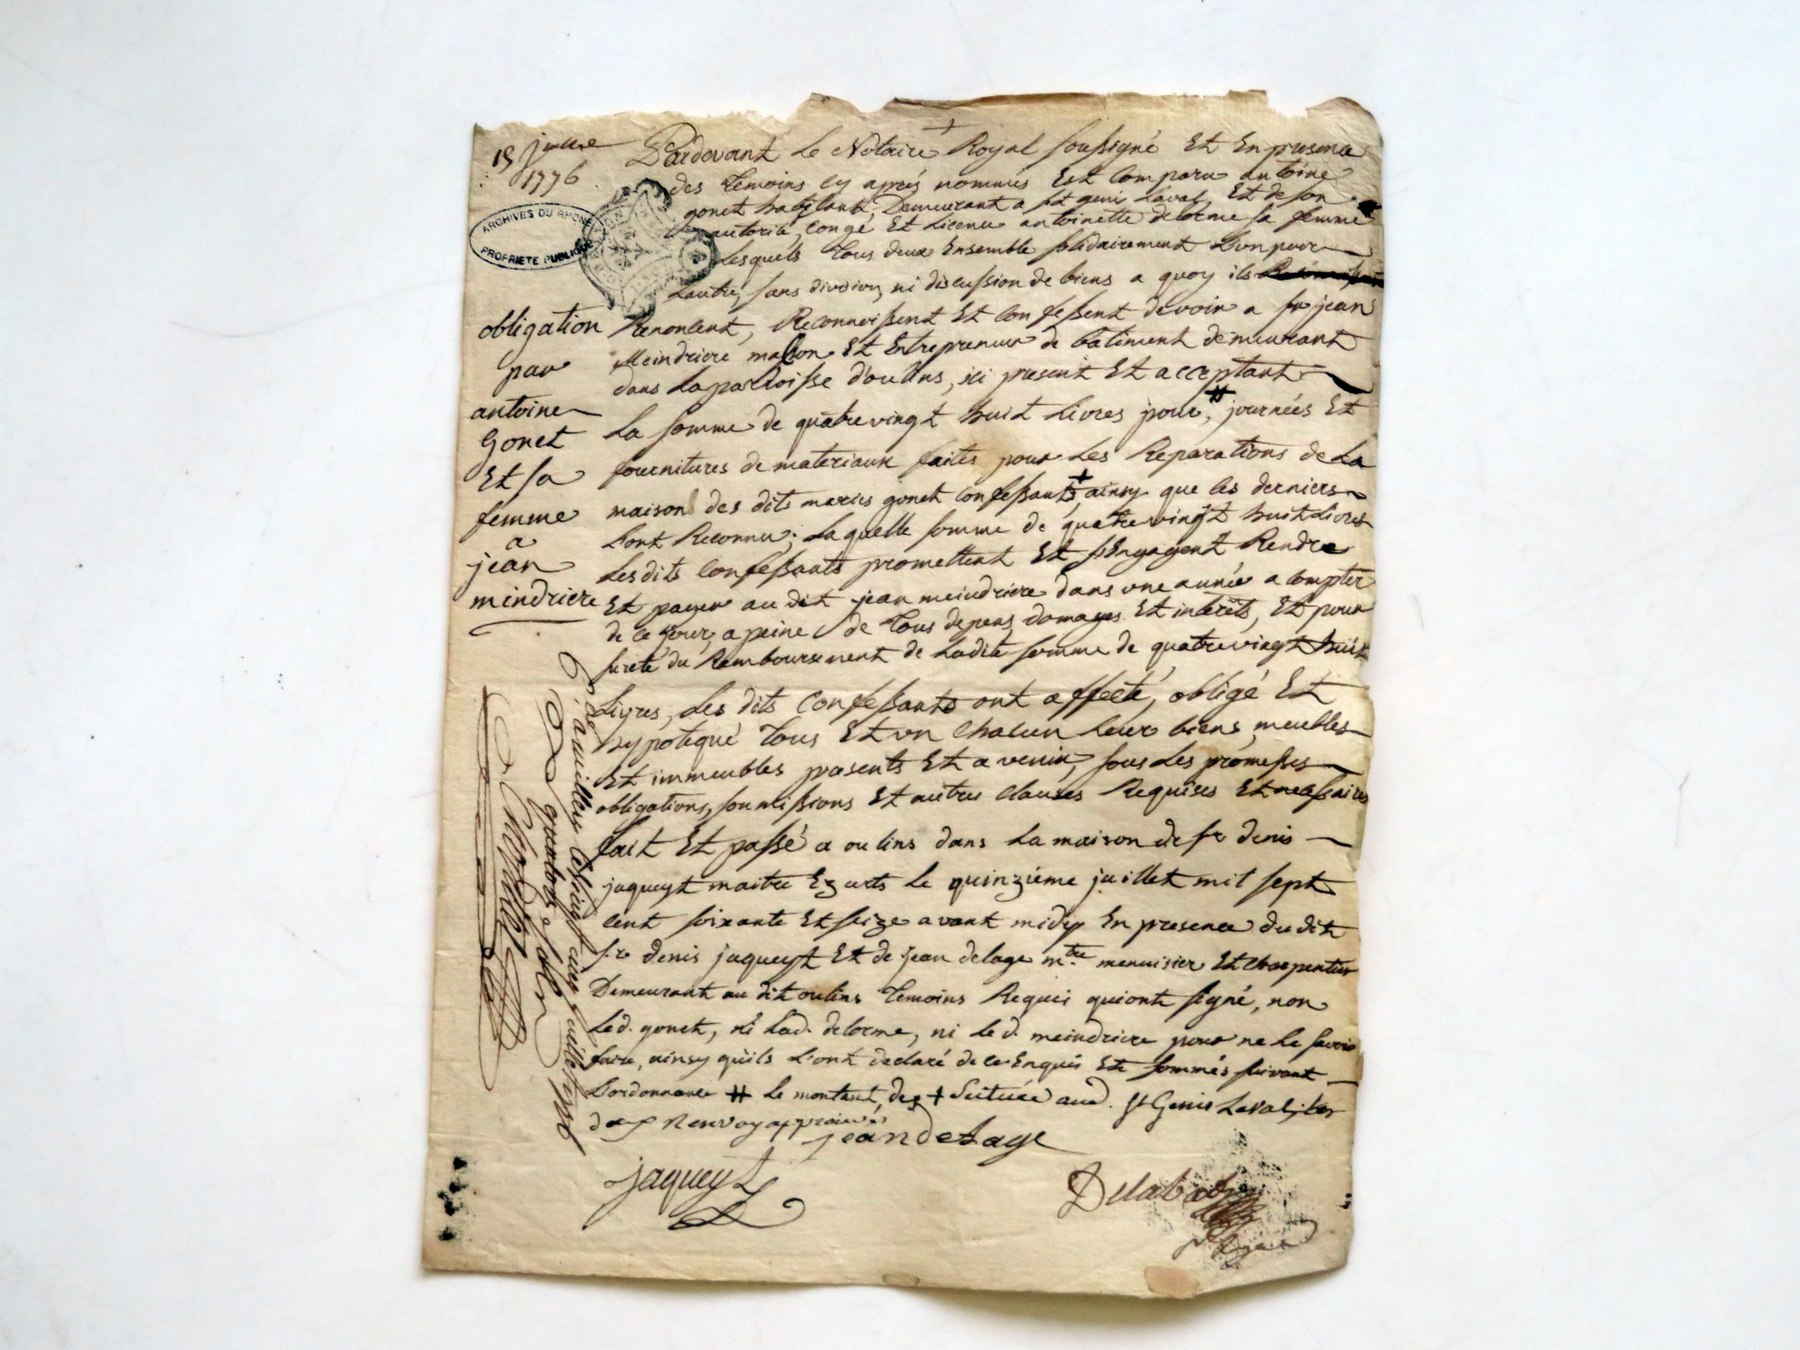 15 juillet
1776
ARCHIVES DU RHÔNE
PROPRIETE PUBLIQUE
obligation
par
antoine
Gonet
Et sa
femme
a
jean
meindriere
Pardevant Le Notaire Royal soussigné Et En presence
des temoins cy aprés nommés Est Comparu antoine
gonet habitant, Demeurant a st genis Laval, Et de son
autorité, congé Et Licence antoinette delorme sa femme
Lesquels tous deux Ensemble solidairement L'un pour
Lautre, sans division, ni discussion de biens a quoy ils
Renoncent, Reconnoissent Et Confessent devoir a sr jean
Meindriere masson Et Entrepreneur de batiment demeurant
dans La parroisse d'oulins, ici present Et acceptant
La somme de quatrevingt huit Livres pour # journées Et
fournitures de materiaux faites pour Les Reparations de La
maison des dits mariés gonet confessants + ainsy que Ces derniers
L'ont Reconnu; Laquelle somme de quatrevingt huit Livres
Lesdits Confessants promettent Et s'Engagent Rendre
Et payer au dit jean meindriere dans une année a Compter
de Ce jour, a peine de tous depens, domages Et intérêts, Et pour
sureté du Remboursement de Ladite somme de quatrevingt huit
Livres, Les dits Confessants ont affecté, obligé Et
hypotequé tous Et un Chacun Leur biens, meubles
Et immeubles presents Et avenir, sous Les promesses
obligations, soumissions Et autres Clauses Requises Et necessaires
fait Et passé a oulins dans La maison de sr denis
jaqueyt maitre Ez arts Le quinziéme juillet mil sept
Cent soixante Et seize avant midy En presence du dit
sr denis jaqueyt Et de jean delage mtre menuisier Et Charpentier
Demeurant au dit oulins temoins Requis qui ont signé, non
Led. gonet, ni Lad. delorme, ni Le d. meindriere pour ne Le savoir
faire, ainsy qu'ils L'ont declaré de Ce Enquis Et sommés suivant
L'ordonnance # Le montant des + Scituée aud. St Genis Laval,
Renvoy approuvé
jean deLage
jaqueyt